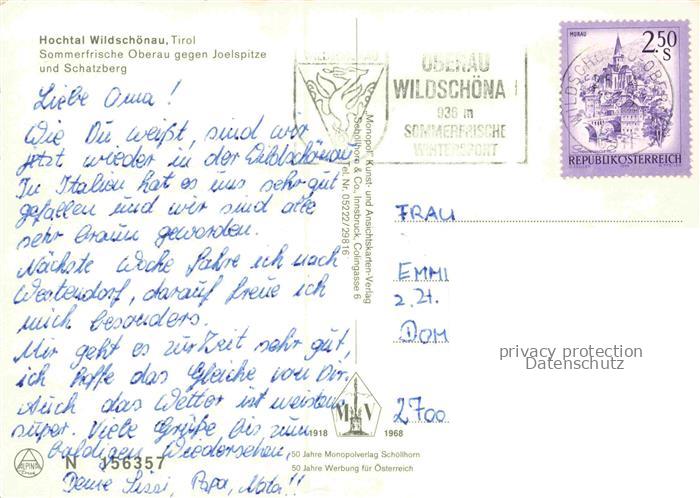 Hochtal Wildschönau, Tirol
Sommerfrische Oberau gegen Joelspitze
und Schatzberg
OBERAU
WILDSCHÖNA
936 m
SOMMERFRISCHE
WINTERSPORT
MURAU
2.50
S
REPUBLIK ÖSTERREICH
Liebe Oma!
Wie Du weißt, sind wir
jetzt wieder in der Wildschönau
In Italien hat es uns sehr gut
gefallen und wir sind alle
sehr braun geworden.
Nächste Woche fahre ich nach
Westendorf, darauf freue ich
mich besonders.
Mir geht es zurZeit sehr gut,
ich hoffe das Gleiche von Dir.
Auch das Wetter ist meistens
super. Viele Grüße bis zum
baldigen Wiedersehen,
Deine Sissi, Papa,
Monopol, Kunst- und Ansichtskarten-Verlag
Schöllhorn & Co., Innsbruck, Colingasse 6
Tel. Nr. 05222/29816
FRAU
EMMI
z. Zt.
DOM
2700
privacy protection
Datenschutz
M V
1918 1968
50 Jahre Monopolverlag Schöllhorn
50 Jahre Werbung für Österreich
ALPINA
N 156357